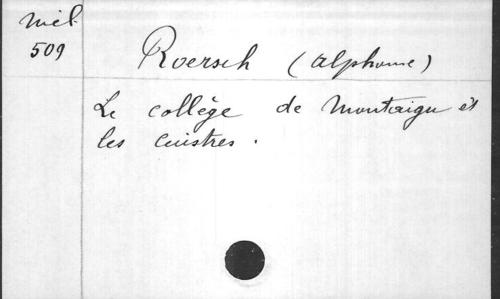 Mél.
509
Roersch (Alphonse)
Le collège de Montaigu et
les cuistres.